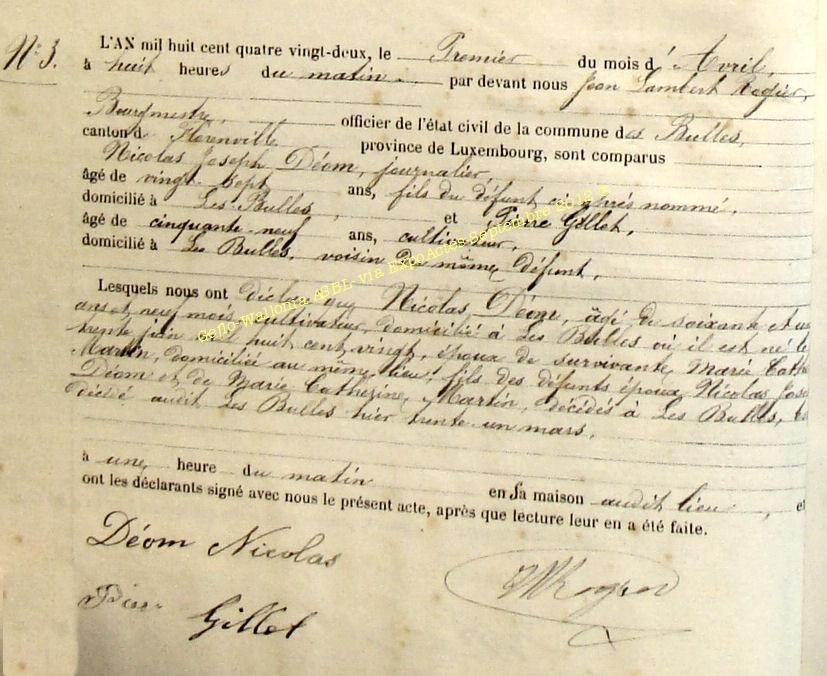 N° 3.
L'AN mil huit cent quatre vingt-deux, le Premier du mois d'Avril,
à huit heures du matin par devant nous Jean Lambert Rogier,
Bourgmestre, officier de l'état civil de la commune des Bulles,
canton de Florenville province de Luxembourg, sont comparus
Nicolas Joseph Déom, journalier,
âgé de vingt-sept ans, fils du défunt ci-après nommé,
domicilié à Les Bulles, et Pierre Gillet,
âgé de cinquante-neuf ans, cultivateur,
domicilié à Les Bulles, voisin du même défunt,
Lesquels nous ont déclaré que Nicolas Déom, âgé de soixante et un
ans et neuf mois, cultivateur, domicilié à Les Bulles où il est né le
trente juin mil huit cent vingt, époux de survivante Marie Cath
Martin, domiciliée au même lieu, fils des défunts époux Nicolas Jose
Déom et de Marie Catherine Martin, décédés à Les Bulles, est
décédé audit Les Bulles hier trente-un mars,
à une heure du matin en sa maison audit lieu, et
ont les déclarants signé avec nous le présent acte, après que lecture leur en a été faite.
Déom Nicolas
Rogier
Pierre Gillet
Geno-Wallonia ASBL-via ExpoActes Septembre 2016